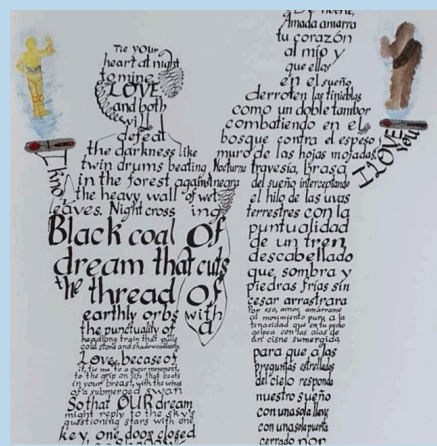 Tie your
heart at night
to mine
LOVE
and both
will
defeat
the darkness like
twin drums beating
in the forest against
the heavy wall of wet
leaves. Night crossing
Black coal of
dream that cuts
the thread of
earthly orbs with
the punctuality of a
headlong train that pulls
cold stone and shadow endlessly
Love, because of
it, tie me to a purer movement,
to the grip on life that beats
in your breast, with the wings
of a submerged swan
So that OUR dream
might reply to the sky's
questioning stars with one
key, one door closed
I know
De noche,
Amada amarra
tu corazón
al mío y
que ellos
en el sueño
derroten las tinieblas
como un doble tambor
combatiendo en el
bosque contra el espeso
muro de las hojas mojadas.
Nocturna travesía, brasa
negra del sueño interceptando
el hilo de las uvas
terrestres con la
puntualidad
de un tren
descabellado
que sombra y
piedras frías sin
cesar arrastrara
Por eso, amor, amárrame
al movimiento puro, a la
tenacidad que en tu pecho
golpea con las alas de
un cisne sumergido
para que a las
preguntas estrelladas
del cielo responda
nuestro sueño
con una sola llave
con una sola puerta
cerrado por
I LOVE
you